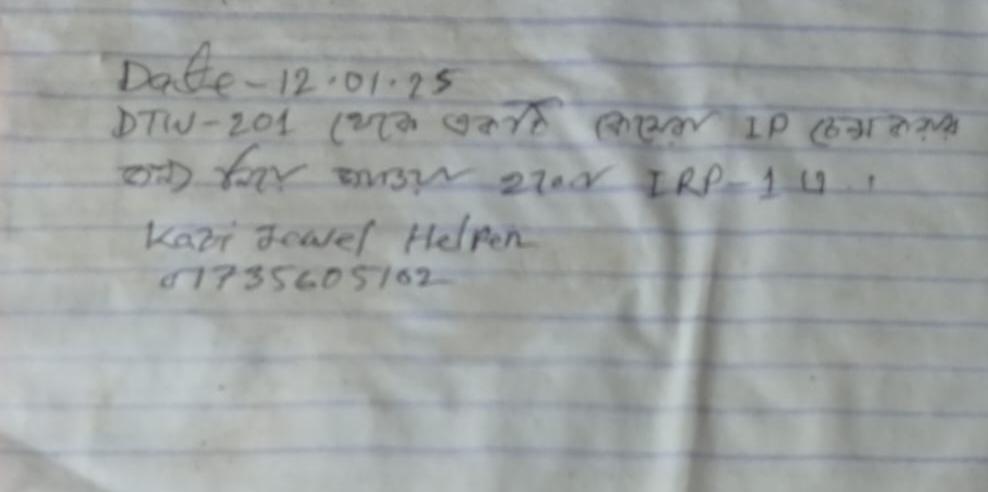 Date - 12.01.25
DTW-201 থেকে একটি ফোনের IP চেক করার
জন্য নিয়ে যাওয়া হলো IRP-1 এ ।
Kazi Jewel Helper
01735605102